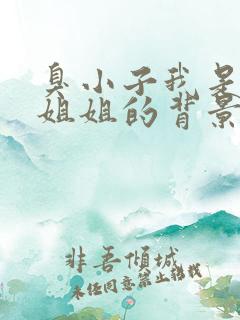 臭小子我是
姐姐的背景
非吾倾城
未经同意禁止转载